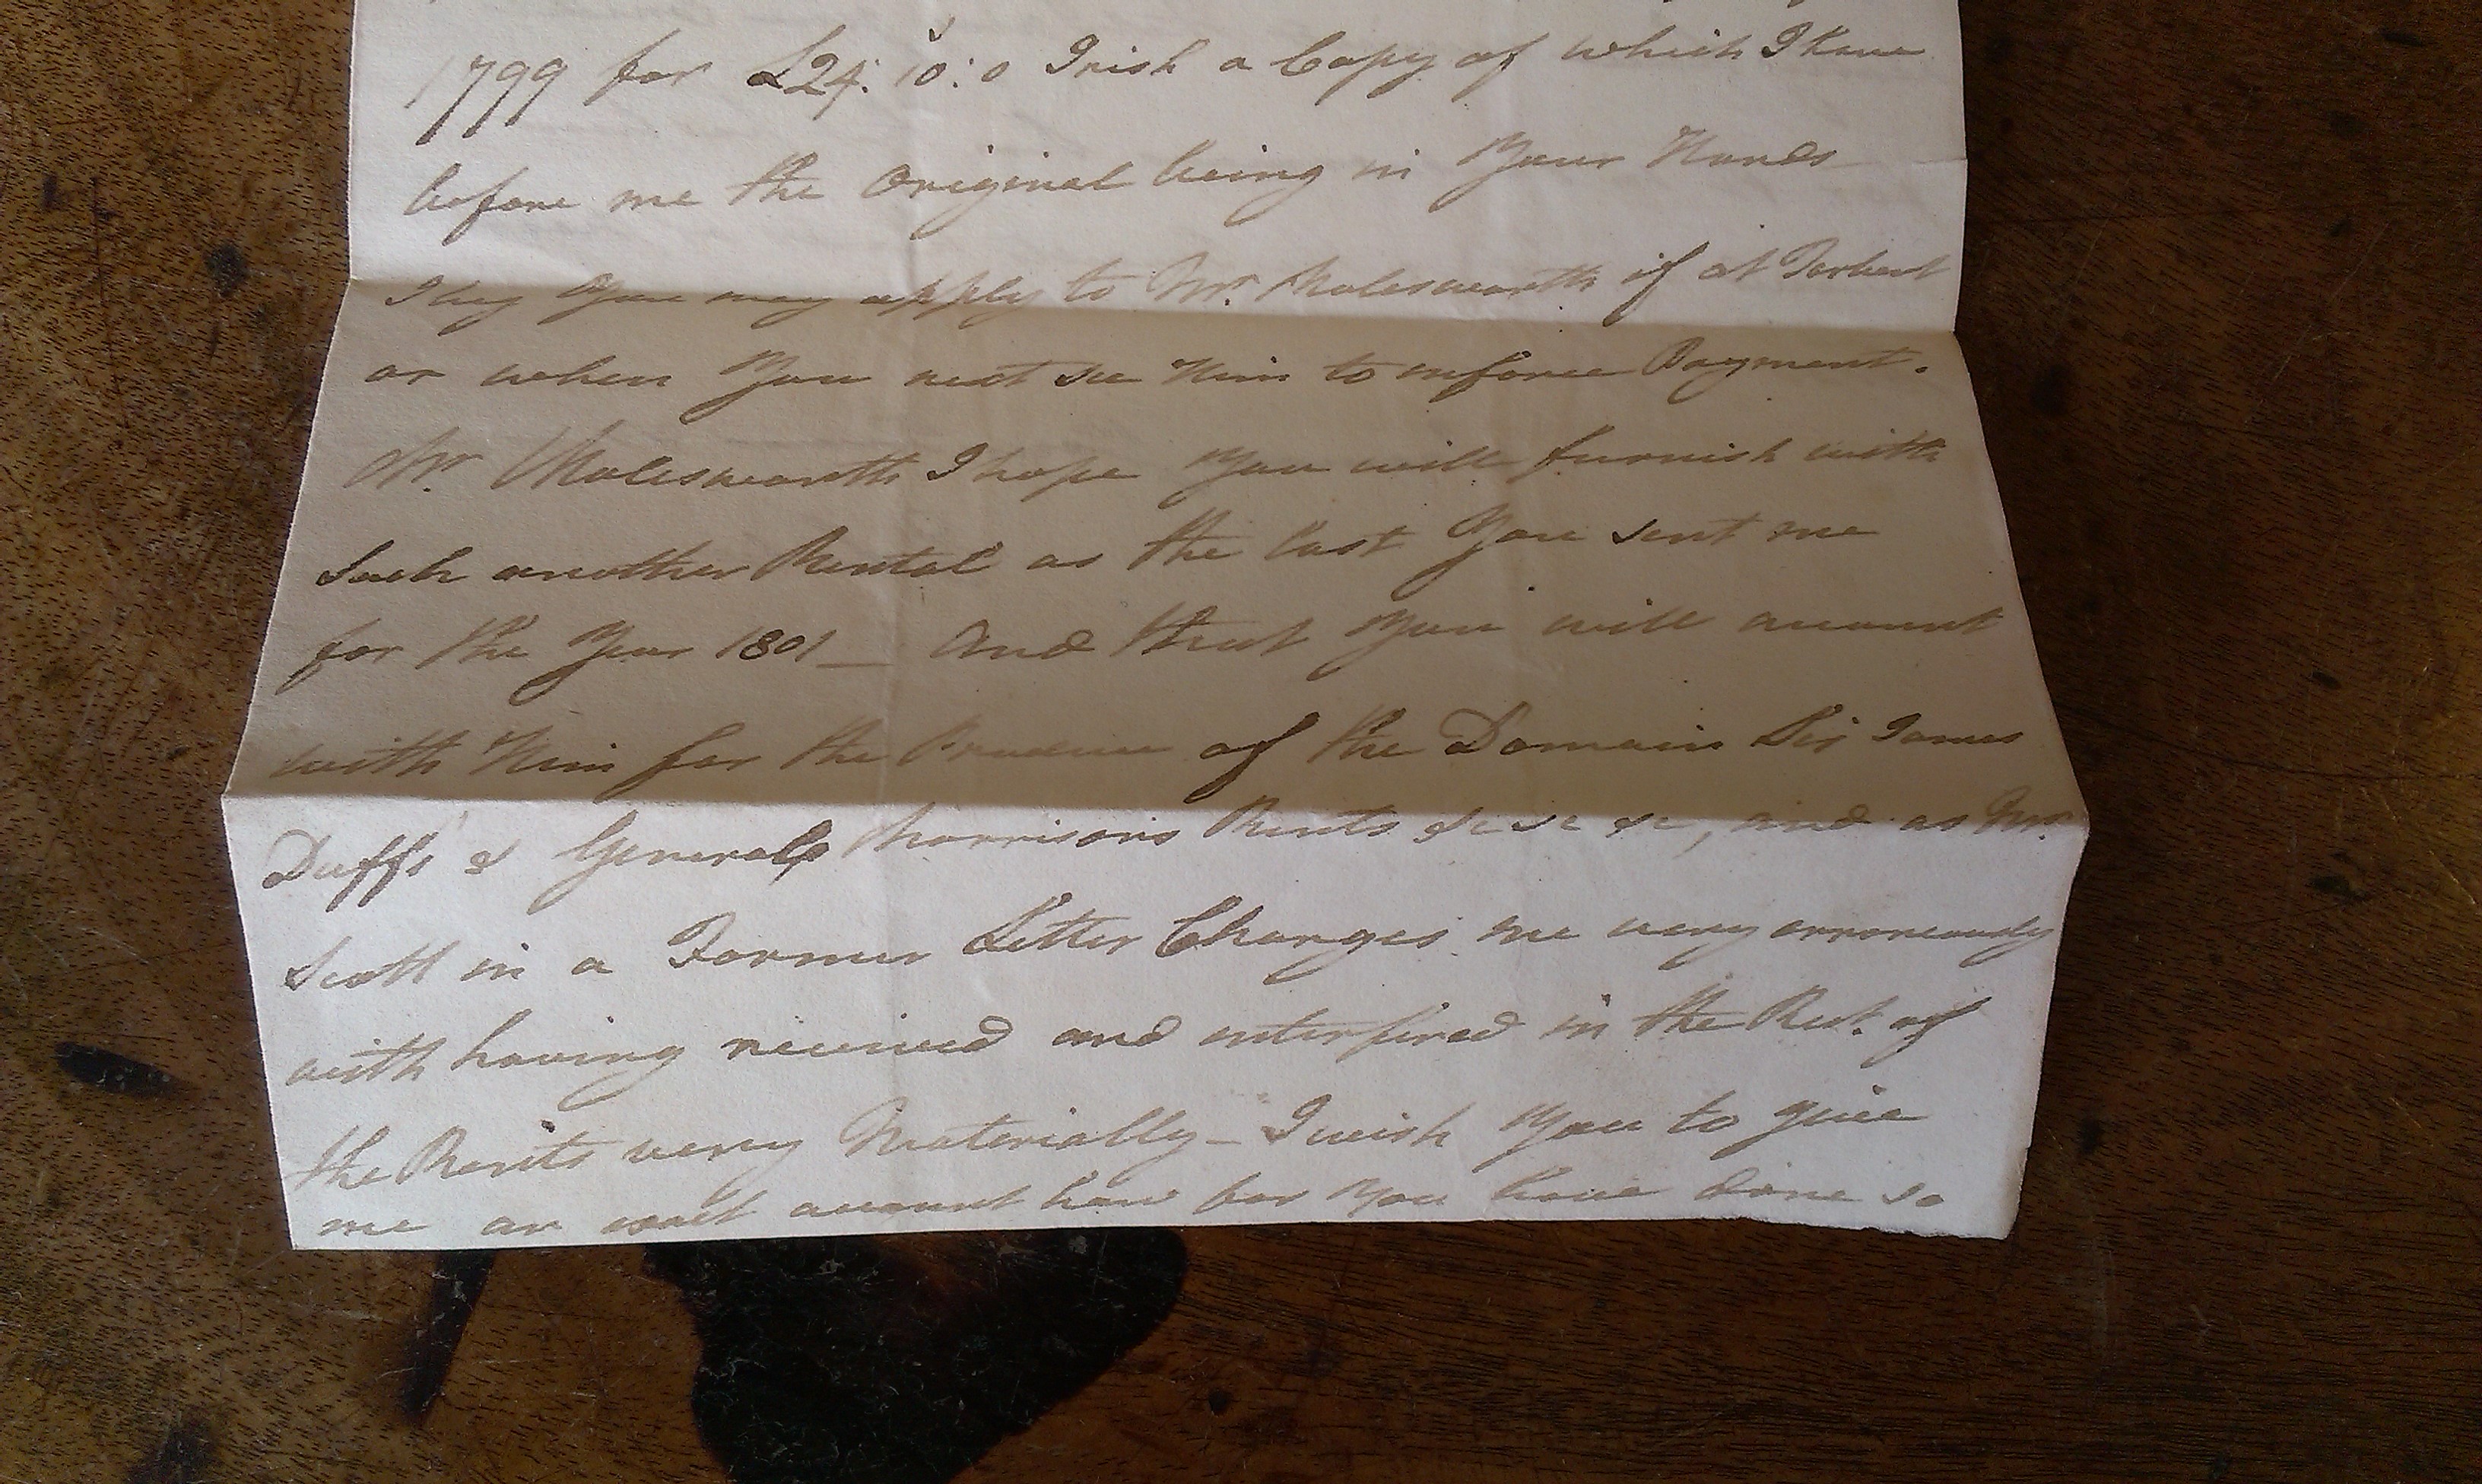 1799 for £24: 10: 0 Irish a Copy of which I have
before me the Original being in Your Hands
I beg You may apply to Mr. Molesworth if at Tarbert
or when You next see Him to enforce Payment.
Mr. Molesworth I hope You will furnish with
Such another Rental as the last You sent me
for the Year 1801 _ And that You will account
with Him for the Produce of the Domain Sir James
Duffs & Generals Morrisons Rents &c &c &c, and as Mr.
Scott in a Former Letter Charges me very erroneously
with having received and interfered in the Rect. of
the Rents very Materially _ I wish You to give
me an exact account how far You have done so